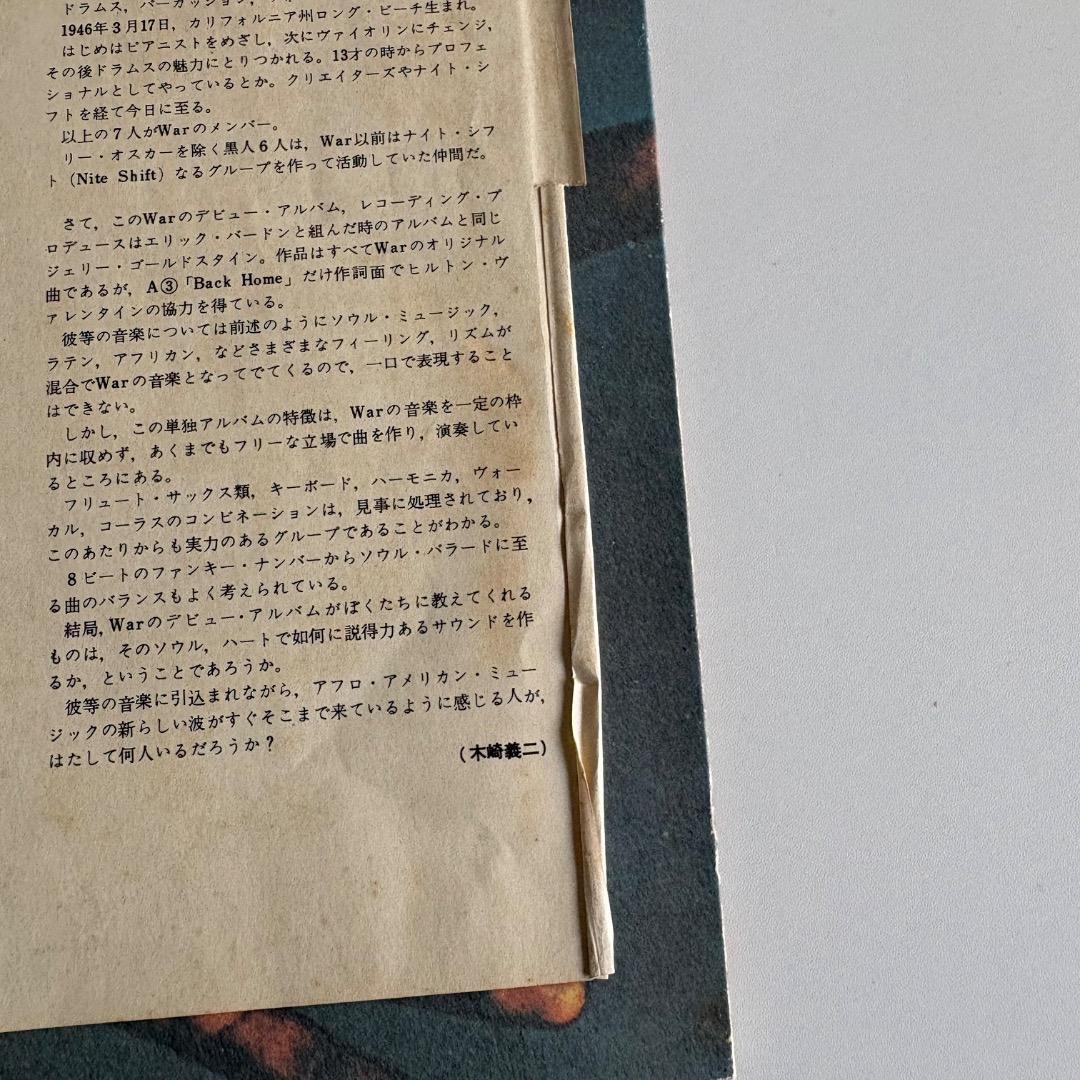 ドラムス, パーカッション,
1946年3月17日, カリフォルニア州ロング・ビーチ生まれ。
はじめはピアニストをめざし, 次にヴァイオリンにチェンジ,
その後ドラムスの魅力にとりつかれる。13才の時からプロフェ
ショナルとしてやっているとか。クリエイターズやナイト・シ
フトを経て今日に至る。
以上の7人がWarのメンバー。
リー・オスカーを除く黒人6人は, War以前はナイト・シフ
ト (Nite Shift) なるグループを作って活動していた仲間だ。
さて, このWarのデビュー・アルバム, レコーディング・プ
ロデュースはエリック・バードンと組んだ時のアルバムと同じ
ジェリー・ゴールドスタイン。作品はすべてWarのオリジナル
曲であるが, A③「Back Home」だけ作詞面でヒルトン・ヴ
ァレンタインの協力を得ている。
彼等の音楽については前述のようにソウル・ミュージック,
ラテン, アフリカン, などさまざまなフィーリング, リズムが
混合でWarの音楽となってでてくるので, 一口で表現すること
はできない。
しかし, この単独アルバムの特徴は, Warの音楽を一定の枠
内に収めず, あくまでもフリーな立場で曲を作り, 演奏してい
るところにある。
フリュート・サックス類, キーボード, ハーモニカ, ヴォー
カル, コーラスのコンビネーションは, 見事に処理されており,
このあたりからも実力のあるグループであることがわかる。
8ビートのファンキー・ナンバーからソウル・バラードに至
る曲のバランスもよく考えられている。
結局, Warのデビュー・アルバムがぼくたちに教えてくれる
ものは, そのソウル, ハートで如何に説得力あるサウンドを作
るか, ということであろうか。
彼等の音楽に引込まれながら, アフロ・アメリカン・ミュー
ジックの新らしい波がすぐそこまで来ているように感じる人が,
はたして何人いるだろうか?
(木崎義二)